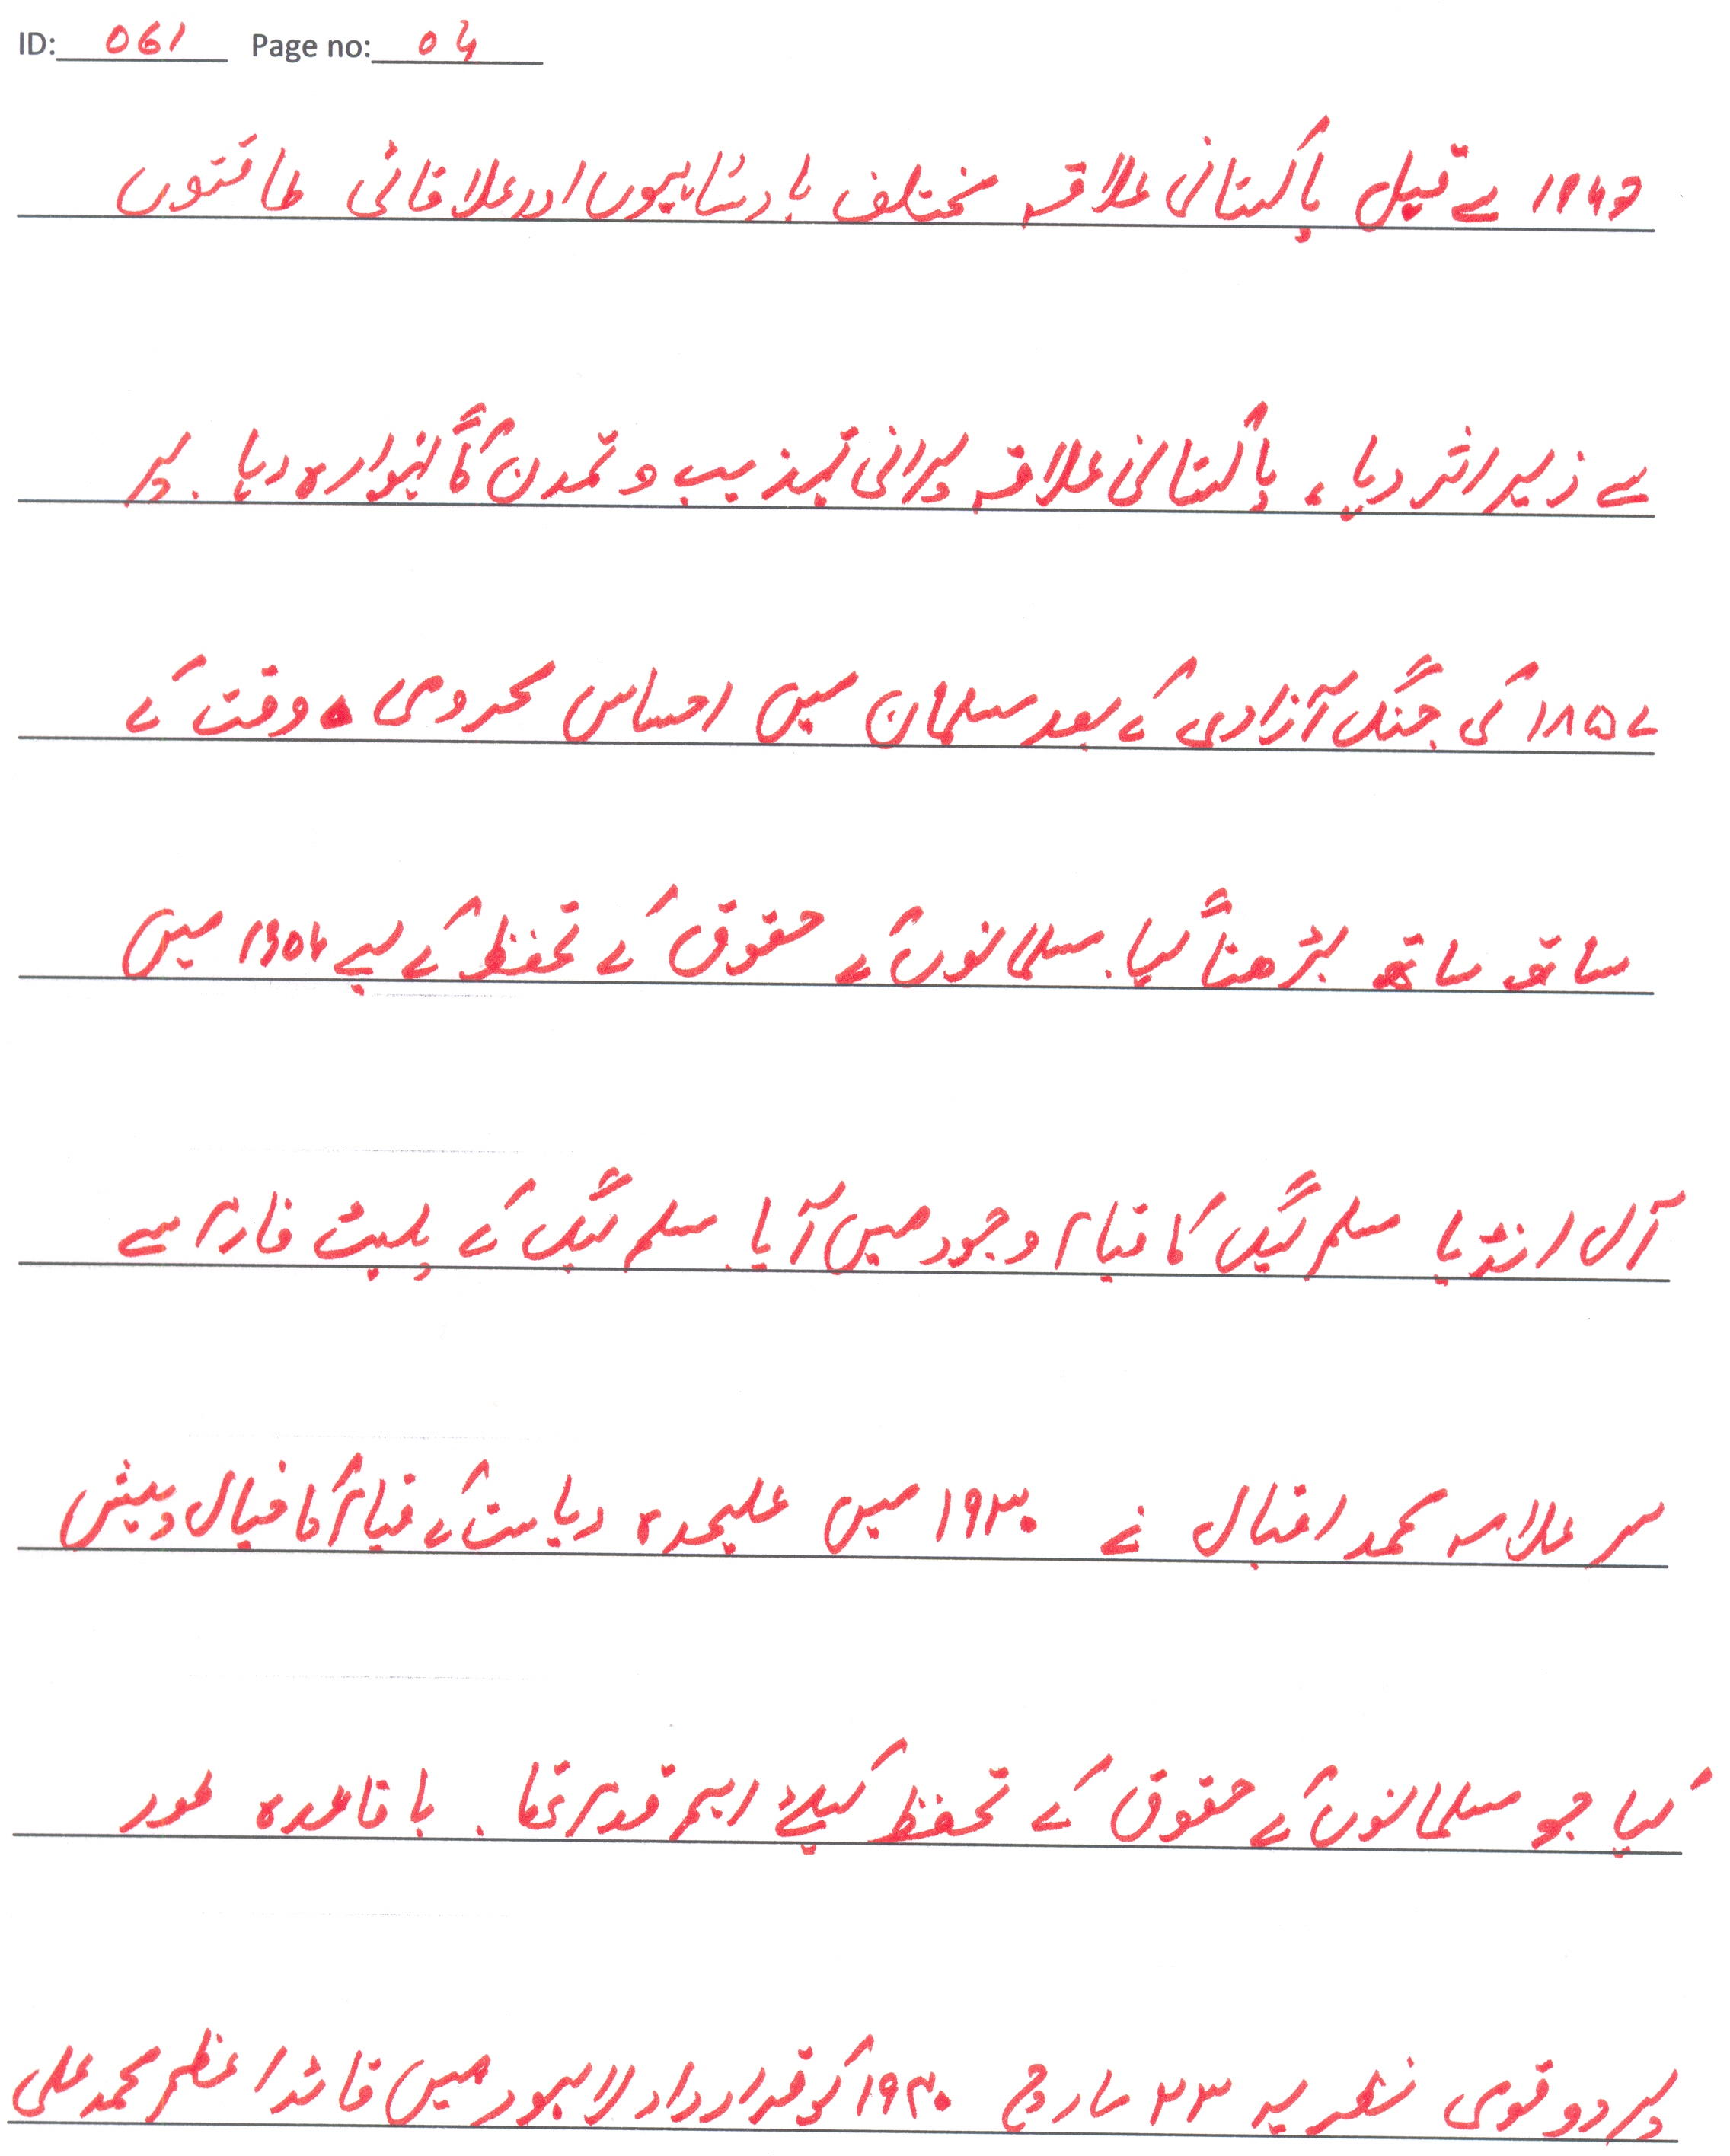 ID: 061 Page no: 04
۱۹۴۷ سے قبل پاکستانی علاقہ مختلف بادشاہیوں اور علاقائی طاقتوں
سے زیر اثر رہا، پاکستانی علاقہ پرانی تہذیب و تمدن کا گہوارہ رہا. پر
۱۸۵۷ کی جنگ آزادی کے بعد مسلمان میں احساس محرومی وقت کے
ساتھ ساتھ بڑھتا گیا. مسلمانوں کے حقوق کے تحفظ کے لیے ۱۹۰۶ میں
آل انڈیا مسلم لیگ کا قیام وجود میں آیا. مسلم لیگ کے پلیٹ فارم سے
سر علامہ محمد اقبال نے ۱۹۳۰ میں علیحدہ ریاست کے قیام کا خیال پیش
کیا جو مسلمانوں کے حقوق کے تحفظ کیلئے اہم قدم تھا. باقاعدہ طور
پر دو قومی نظریہ ۲۳ مارچ ۱۹۴۰ کو قرارداد لاہور میں قائد اعظم محمد علی